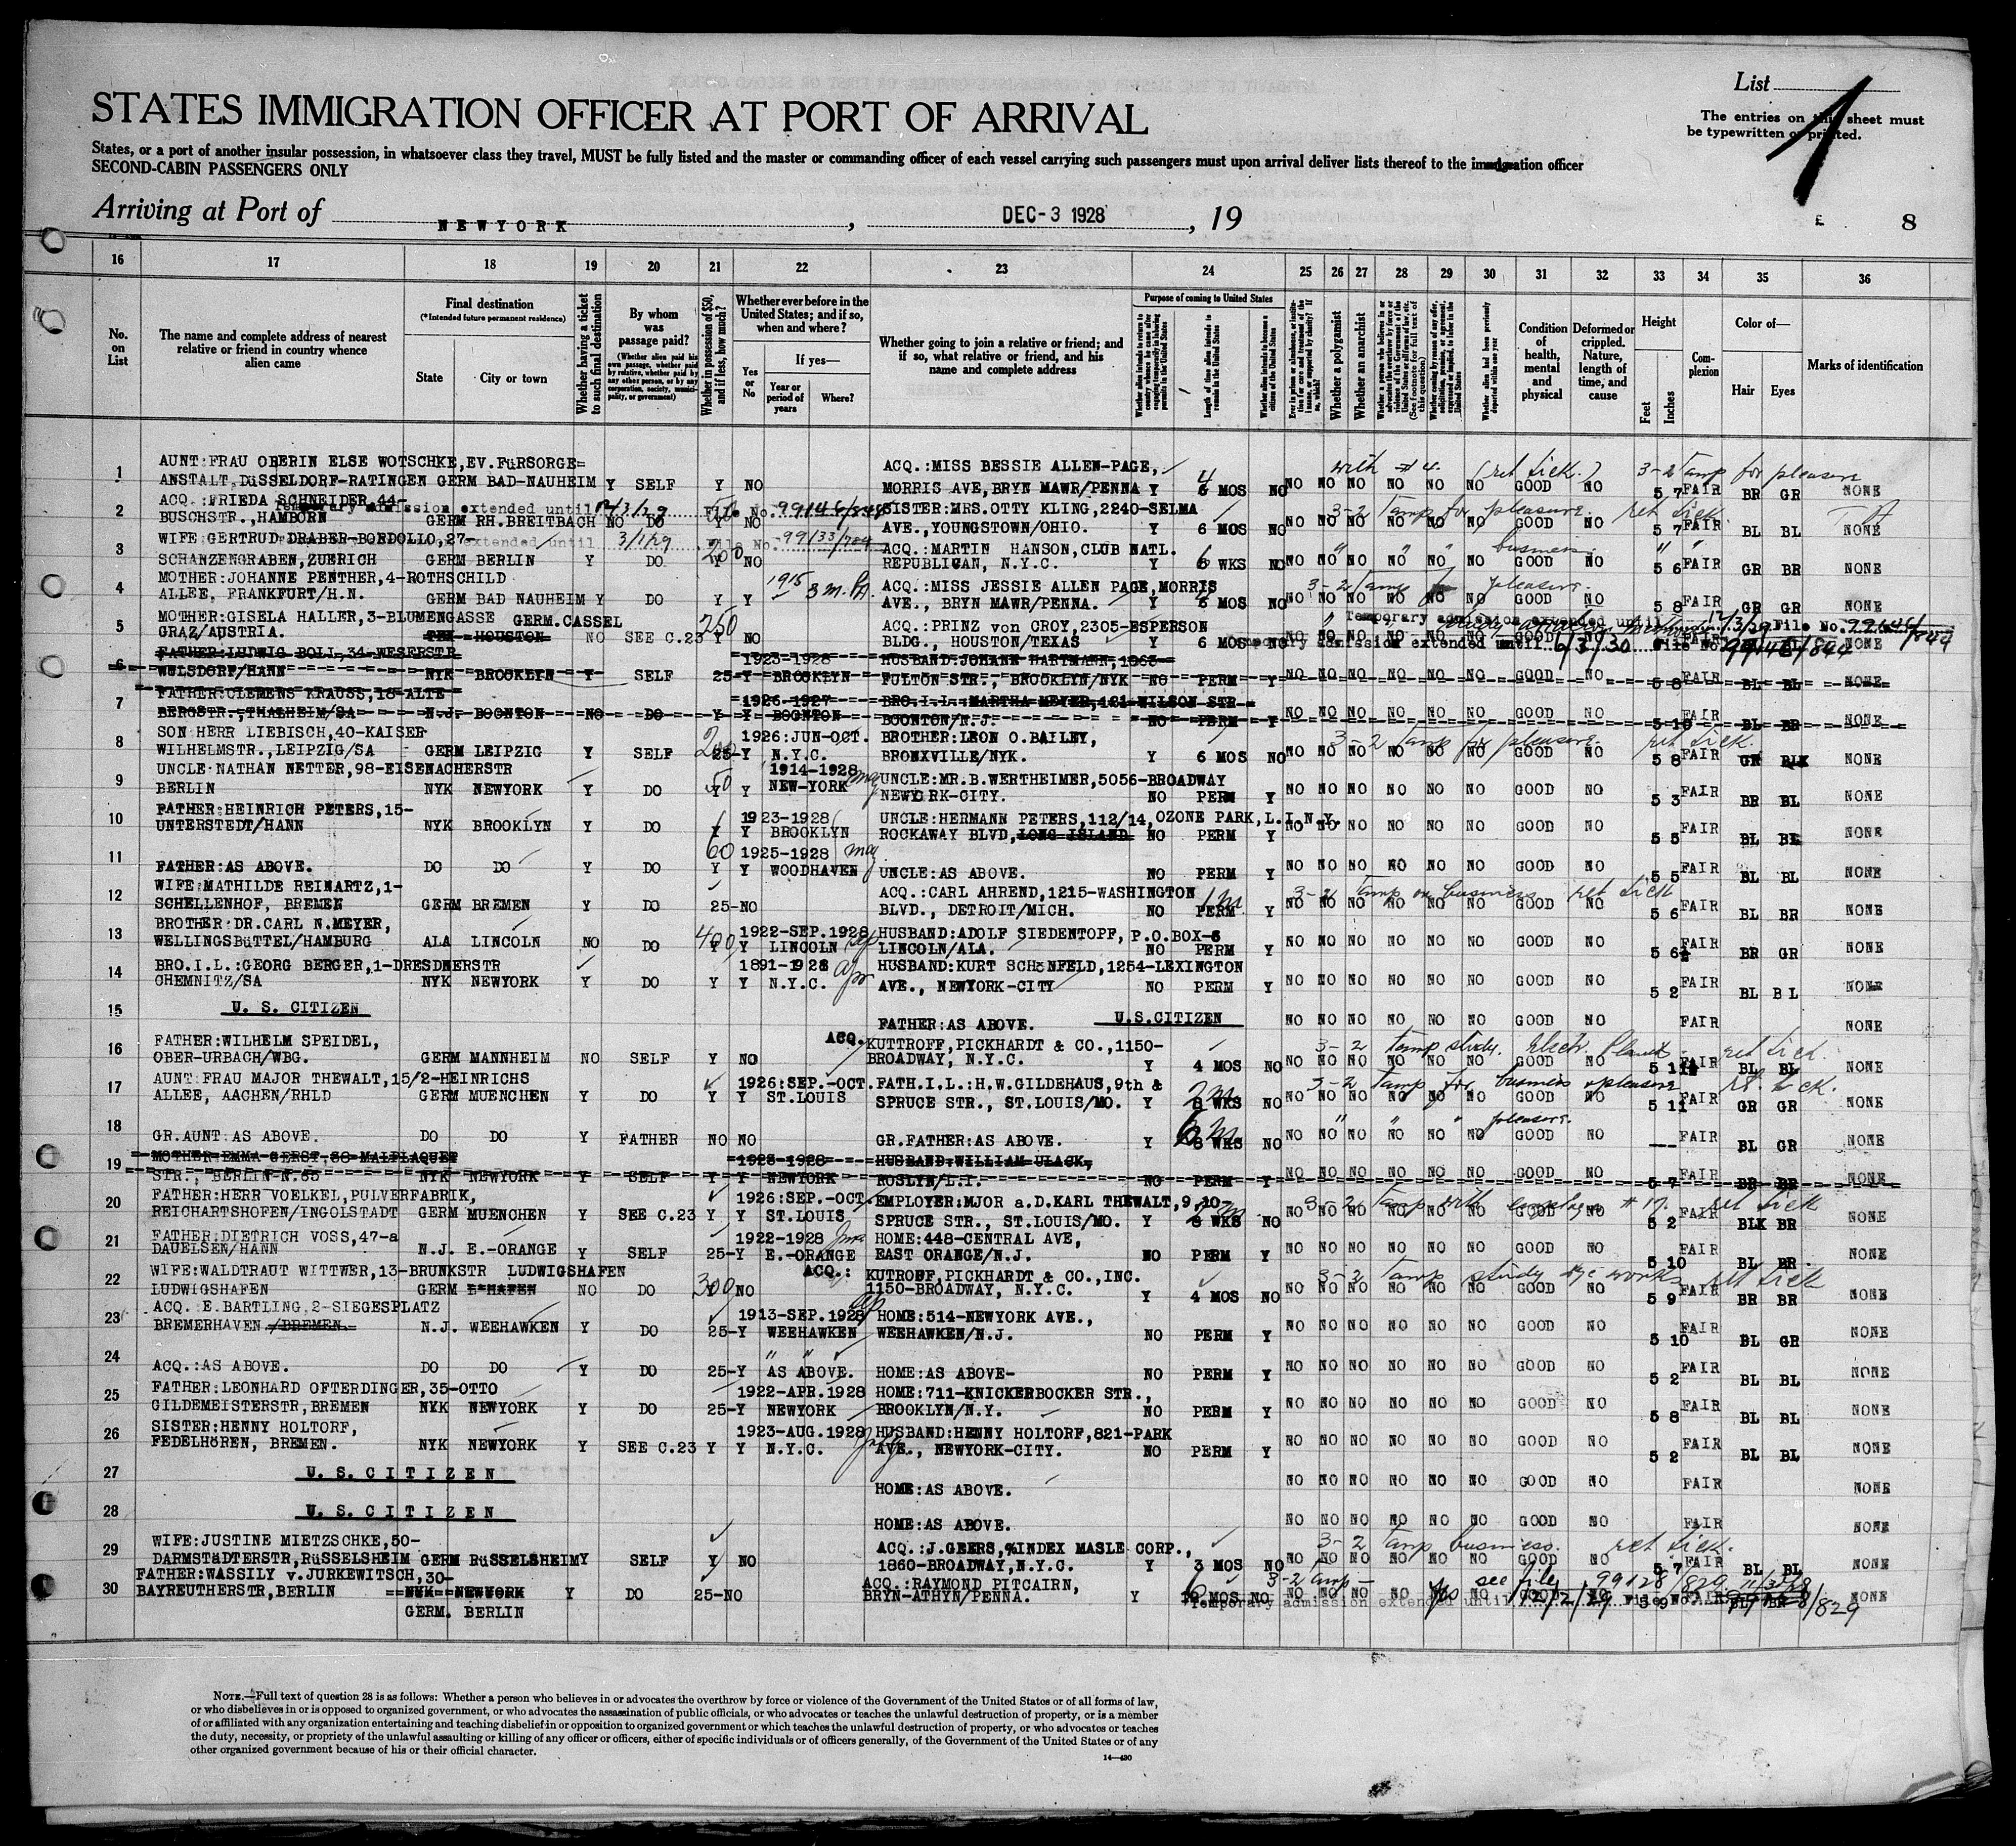 List
The entries on this sheet must
be typewritten or printed.
1
STATES IMMIGRATION OFFICER AT PORT OF ARRIVAL
States, or a port of another insular possession, in whatsoever class they travel, MUST be fully listed and the master or commanding officer of each vessel carrying such passengers must upon arrival deliver lists thereof to the immigration officer
SECOND-CABIN PASSENGERS ONLY
Arriving at Port of NEWYORK, DEC-3 1928, 19
8
16 17 18 19 20 21 22 23 24 25 26 27 28 29 30 31 32 33 34 35 36
No. on List
The name and complete address of nearest relative or friend in country whence alien came
Final destination
(*Intended future permanent residence)
State
City or town
Whether having a ticket to such final destination
By whom was passage paid?
(Whether alien paid his own passage, whether paid by relative, whether paid by any other person, or by any corporation, society, municipality, or government)
Whether in possession of $50, and if less, how much?
Whether ever before in the United States; and if so, when and where?
Yes or No
If yes—
Year or period of years
Where?
Whether going to join a relative or friend; and if so, what relative or friend, and his name and complete address
Purpose of coming to United States
Length of time alien intends to remain in the United States
Whether alien intends to become a citizen of the United States
Whether a polygamist
Whether an anarchist
Condition of health, mental and physical
Deformed or crippled. Nature, length of time, and cause
Height
Feet
Inches
Complexion
Color of—
Hair
Eyes
Marks of identification
1 AUNT:FRAU OBERIN ELSE WOTSCHKE,EV.FüRSORGE= ACQ.:MISS BESSIE ALLEN-PAGE, with #4. (ret tick.) 3-2 Temp for pleasure
ANSTALT,DüSSELDORF-RATINGEN GERM BAD-NAUHEIM Y SELF Y NO MORRIS AVE,BRYN MAWR/PENNA Y 6 MOS NO NO NO NO NO NO NO GOOD NO 5 7 FAIR BR GR NONE
2 ACQ.:FRIEDA SCHNEIDER,44- Temporary admission extended until File No. SISTER:MRS.OTTY KLING,2240-SELMA 3-2 Temp for pleasure. ret tick.
BUSCHSTR.,HAMBORN GERM RH.BREITBACH NO DO Y NO AVE.,YOUNGSTOWN/OHIO. Y 6 MOS NO NO NO NO NO NO NO GOOD NO 5 7 FAIR BL BL NONE
3 WIFE:GERTRUD DRABER-BONDOLLO,27- extended until 3/1/29 File No. 99133/784 ACQ.:MARTIN HANSON,CLUB NATL. business
SCHANZENGRABEN,ZUERICH GERM BERLIN Y DO 200 Y NO REPUBLICAN, N.Y.C. Y 6 WKS NO NO NO NO NO NO NO GOOD NO 5 6 FAIR GR BR NONE
4 MOTHER:JOHANNE PENTHER,4-ROTHSCHILD 1915 3 m. Pa. ACQ.:MISS JESSIE ALLEN PAGE,MORRIS 3-2 Temp for pleasure.
ALLEE, FRANKFURT/H.N. GERM BAD NAUHEIM Y DO Y Y AVE., BRYN MAWR/PENNA. Y 6 MOS NO NO NO NO NO NO NO GOOD NO 5 8 FAIR GR GR NONE
5 MOTHER:GISELA HALLER,3-BLUMENGASSE GERM.CASSEL 250 ACQ.:PRINZ von CROY,2305-ESPERSON Temporary admission extended until File No.
GRAZ/AUSTRIA. TEX HOUSTON NO SEE C.23 Y NO BLDG., HOUSTON/TEXAS Y 6 MOS NO NO NO NO NO NO GOOD NO admission extended until 6/3/30 File No. FAIR NONE
6 FATHER:LUDWIG BOLL,34-WESERSTR 1923-1928 HUSBAND:JOHANN HARTMANN,1363-
WULSDORF/HANN NYK BROOKLYN Y SELF 25-Y BROOKLYN FULTON STR., BROOKLYN/NYK NO PERM Y NO NO NO NO NO NO GOOD NO 5 8 FAIR BL BL NONE
7 FATHER:CLEMENS KRAUSS,18-ALTE 1926-1927 BRO.I.L.:MARTHA MEYER,121-WILSON STR
BERGSTR.,THALHEIM/SA N.J. BOONTON NO DO Y Y BOONTON BOONTON/N.J. NO PERM Y NO NO NO NO NO NO GOOD NO 5 10 FAIR BL BR NONE
8 SON HERR LIEBISCH,40-KAISER 1926:JUN-OCT. BROTHER:LEON O.BAILEY, 3-2 Temp for pleasure. ret tick.
WILHELMSTR.,LEIPZIG/SA GERM LEIPZIG Y SELF 25-Y N.Y.C. BRONXVILLE/NYK. Y 6 MOS NO NO NO NO NO NO NO GOOD NO 5 8 FAIR GR BLK NONE
9 UNCLE:NATHAN NETTER,98-EISENACHERSTR 1914-1928 may UNCLE:MR.B.WERTHEIMER,5056-BROADWAY
BERLIN NYK NEWYORK Y DO 50 Y Y NEW-YORK NEWYORK-CITY. NO PERM Y NO NO NO NO NO NO GOOD NO 5 3 FAIR BR BL NONE
10 FATHER:HEINRICH PETERS,15- 1923-1928 UNCLE:HERMANN PETERS,112/14,OZONE PARK,L.I.N.Y.
UNTERSTEDT/HANN NYK BROOKLYN Y DO Y Y BROOKLYN ROCKAWAY BLVD,LONG ISLAND NO PERM Y NO NO NO NO NO NO GOOD NO 5 5 FAIR BL BL NONE
11 60 1925-1928 may
FATHER:AS ABOVE. DO DO Y DO Y Y WOODHAVEN UNCLE:AS ABOVE. NO PERM Y NO NO NO NO NO NO GOOD NO 5 5 FAIR BL BL NONE
12 WIFE:MATHILDE REINARTZ,1- ACQ.:CARL AHREND,1215-WASHINGTON 1m 3-2 Temp on business ret tick
SCHELLENHOF, BREMEN GERM BREMEN Y DO 25-NO BLVD., DETROIT/MICH. NO PERM Y NO NO NO NO NO NO GOOD NO 5 6 FAIR BL BR NONE
13 BROTHER:DR.CARL N.MEYER, 400 1922-SEP.1928 HUSBAND:ADOLF SIEDENTOPF, P.O.BOX-6
WELLINGSBüTTEL/HAMBURG ALA LINCOLN NO DO Y Y LINCOLN LINCOLN/ALA. NO PERM Y NO NO NO NO NO NO GOOD NO 5 6½ FAIR BR GR NONE
14 BRO.I.L.:GEORG BERGER,1-DRESDNERSTR 1891-1928 apr HUSBAND:KURT SCHöNFELD,1254-LEXINGTON
CHEMNITZ/SA NYK NEWYORK Y DO Y Y N.Y.C. AVE., NEWYORK-CITY NO PERM Y NO NO NO NO NO NO GOOD NO 5 2 FAIR BL BL NONE
15 U. S. CITIZEN FATHER:AS ABOVE. U.S.CITIZEN NO NO NO NO NO NO GOOD NO FAIR NONE
16 FATHER:WILHELM SPEIDEL, ACQ. KUTTROFF,PICKHARDT & CO.,1150- 3-2 temp study. ret tick.
OBER-URBACH/WBG. GERM MANNHEIM NO SELF Y NO BROADWAY, N.Y.C. Y 4 MOS NO NO NO NO NO NO NO GOOD NO FAIR BL BL NONE
17 AUNT:FRAU MAJOR THEWALT,15/2-HEINRICHS 1926:SEP.-OCT. FATH.I.L.:H.W.GILDEHAUS,9th & 3-2 Temp for business & pleasure ret tick.
ALLEE, AACHEN/RHLD GERM MUENCHEN Y DO Y Y ST.LOUIS SPRUCE STR., ST.LOUIS/MO. Y 8 WKS NO NO NO NO NO NO NO GOOD NO 5 11 FAIR GR GR NONE
18 " " " pleasure.
GR.AUNT:AS ABOVE. DO DO Y FATHER NO NO GR.FATHER:AS ABOVE. Y 8 WKS NO NO NO NO NO NO NO GOOD NO --- FAIR BL GR NONE
19 MOTHER:EMMA GERST,38-MALPLAQUET 1923-1928 HUSBAND:WILLIAM ULACK,
STR., BERLIN-N.65 NYK NEWYORK Y SELF Y Y NEWYORK ROSLYN/L.I. NO PERM Y NO NO NO NO NO NO GOOD NO 5 7 FAIR BR BR NONE
20 FATHER:HERR VOELKEL,PULVERFABRIK, 1926:SEP.-OCT. EMPLOYER:MJOR a.D.KARL THEWALT,9,10- 3-2 Temp with employer #17. ret tick
REICHARTSHOFEN/INGOLSTADT GERM MUENCHEN Y SEE C.23 Y Y ST.LOUIS SPRUCE STR., ST.LOUIS/MO. Y 8 WKS NO NO NO NO NO NO NO GOOD NO 5 2 FAIR BLK BR NONE
21 FATHER:DIETRICH VOSS,47-a 1922-1928 HOME:448-CENTRAL AVE,
DAUELSEN/HANN N.J. E.-ORANGE Y SELF 25-Y E.-ORANGE EAST ORANGE/N.J. NO PERM Y NO NO NO NO NO NO GOOD NO 5 10 FAIR BL BR NONE
22 WIFE:WALDTRAUT WITTWER,13-BRUNKSTR LUDWIGSHAFEN ACQ.: KUTROFF,PICKHARDT & CO.,INC. 3-2 Temp study dye works ret tick
LUDWIGSHAFEN GERM L-HAFEN NO DO 300 NO 1150-BROADWAY, N.Y.C. Y 4 MOS NO NO NO NO NO NO NO GOOD NO 5 9 FAIR BR BR NONE
23 ACQ. E.BARTLING,2-SIEGESPLATZ 1913-SEP.1928 HOME:514-NEWYORK AVE.,
BREMERHAVEN /BREMEN. N.J. WEEHAWKEN Y DO 25-Y WEEHAWKEN WEEHAWKEN/N.J. NO PERM Y NO NO NO NO NO NO GOOD NO 5 10 FAIR BL GR NONE
24 " "
ACQ.:AS ABOVE. DO DO Y DO 25-Y AS ABOVE. HOME:AS ABOVE- NO PERM Y NO NO NO NO NO NO GOOD NO 5 2 FAIR BL BL NONE
25 FATHER:LEONHARD OFTERDINGER,35-OTTO 1922-APR.1928 HOME:711-KNICKERBOCKER STR.,
GILDEMEISTERSTR,BREMEN NYK NEWYORK Y DO 25-Y NEWYORK BROOKLYN/N.Y. NO PERM Y NO NO NO NO NO NO GOOD NO 5 8 FAIR BL BL NONE
26 SISTER:HENNY HOLTORF, 1923-AUG.1928 HUSBAND:HENNY HOLTORF,821-PARK
FEDELHöREN, BREMEN. NYK NEWYORK Y SEE C.23 Y Y N.Y.C. AVE., NEWYORK-CITY. NO PERM Y NO NO NO NO NO NO GOOD NO 5 2 FAIR BL BL NONE
27 U. S. C I T I Z E N HOME:AS ABOVE. NO NO NO NO NO NO GOOD NO FAIR NONE
28 U. S. C I T I Z E N HOME:AS ABOVE. NO NO NO NO NO NO GOOD NO FAIR NONE
29 WIFE:JUSTINE MIETZSCHKE,50- ACQ.:J.GEERS,%INDEX MASLE CORP., 3-2 Temp business. ret tick.
DARMSTäDTERSTR,RüSSELSHEIM GERM RüSSELSHEIM Y SELF Y NO 1860-BROADWAY,N.Y.C. Y 3 MOS NO NO NO NO NO NO NO GOOD NO 5 7 FAIR BL BL NONE
30 FATHER:WASSILY v.JURKEWITSCH,30- ACQ.:RAYMOND PITCAIRN, 3-2 Temp — see file 99128/829
BAYREUTHERSTR,BERLIN NYK NEWYORK Y DO 25-NO BRYN-ATHYN/PENNA. Y MOS NO NO NO NO NO NO GOOD 5 9 FAIR BL BR NONE
GERM. BERLIN Temporary admission extended until 12/2/29 File No. /829
NOTE.—Full text of question 28 is as follows: Whether a person who believes in or advocates the overthrow by force or violence of the Government of the United States or of all forms of law,
or who disbelieves in or is opposed to organized government, or who advocates the assassination of public officials, or who advocates or teaches the unlawful destruction of property, or is a member
of or affiliated with any organization entertaining and teaching disbelief in or opposition to organized government or which teaches the unlawful destruction of property, or who advocates or teaches
the duty, necessity, or propriety of the unlawful assaulting or killing of any officer or officers, either of specific individuals or of officers generally, of the Government of the United States or of any
other organized government because of his or their official character.
14—430